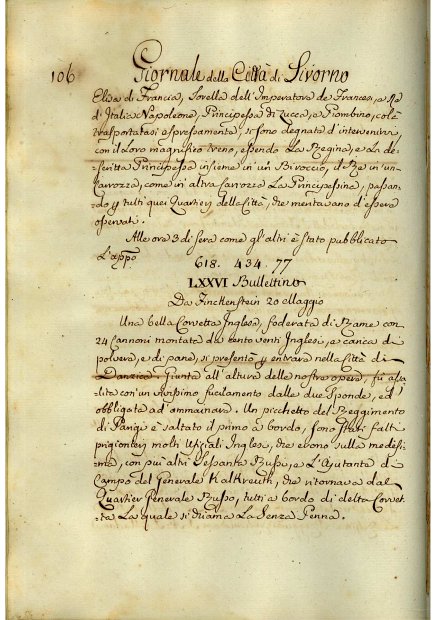 106 Giornale della Città di Livorno
Elisa di Francia, Sorella dell'Imperatore de Francesi, e Re
d'Italia Napoleone, Principessa di Lucca, e Piombino, colà
trasportatasi espressamente, si sono degnate d'intervenirvi
con il loro magnifico treno, essendo La Regina, e La de-
scritta Principessa insieme in un Biroccio, il Re in un
Carrozza, come in altra Carrozza La Principessina, passan-
do p tutti quei Quartieri della Città, che meritavano d'essere
osservati.
Alle ore 3 di sera come gl'altri è stato pubblicato
L'appo
618. 434. 77
LXXVI Bullettino
Da Finckenstein 20 Maggio
Una bella Corvetta Inglese, foderata di Rame con
24 Cannoni montata da cento venti Inglesi, e carica di
polvere, e di pane, si presentò p entrare nella Città di
Danzica. Giunta all'alture delle nostre opere, fù assa-
lita con un vivissimo fucilamento dalle due Sponde, ed
obbligata ad ammainare. Un picchetto del Reggimento
di Parigi è saltato il primo a bordo, sono stati fatti
prigionieri molti Uficiali Inglesi, che erano sulla medesi-
ma, con più altri Sessanta Russi, e L'Ajutante di
Campo del Generale Kalkreuth, che ritornava dal
Quartier Generale Russo, tutti a bordo di detta Corvet-
ta La quale si chiama La Senza Penna.